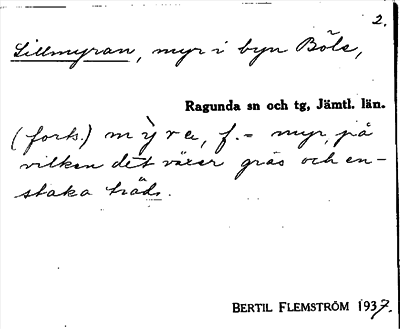 2.
Lillmyran, myr i byn Böle,
Ragunda sn och tg, Jämtl. län.
(forts.) mỳra, f. = myr, på
vilken det växer gräs och en-
staka träd.
BERTIL FLEMSTRÖM 1937.